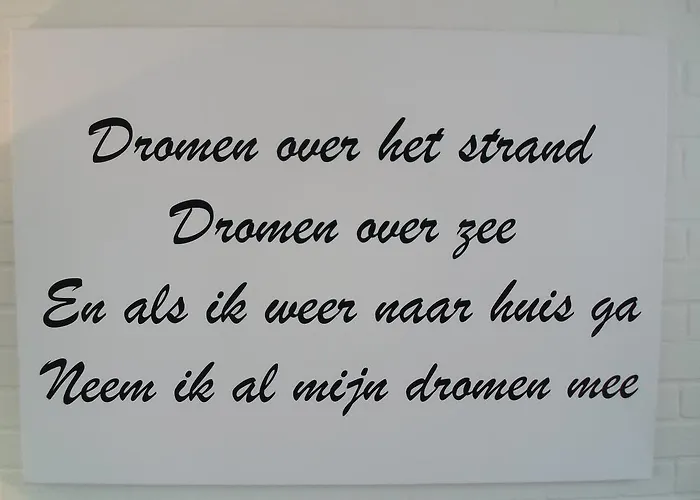 Dromen over het strand
Dromen over zee
En als ik weer naar huis ga
Neem ik al mijn dromen mee